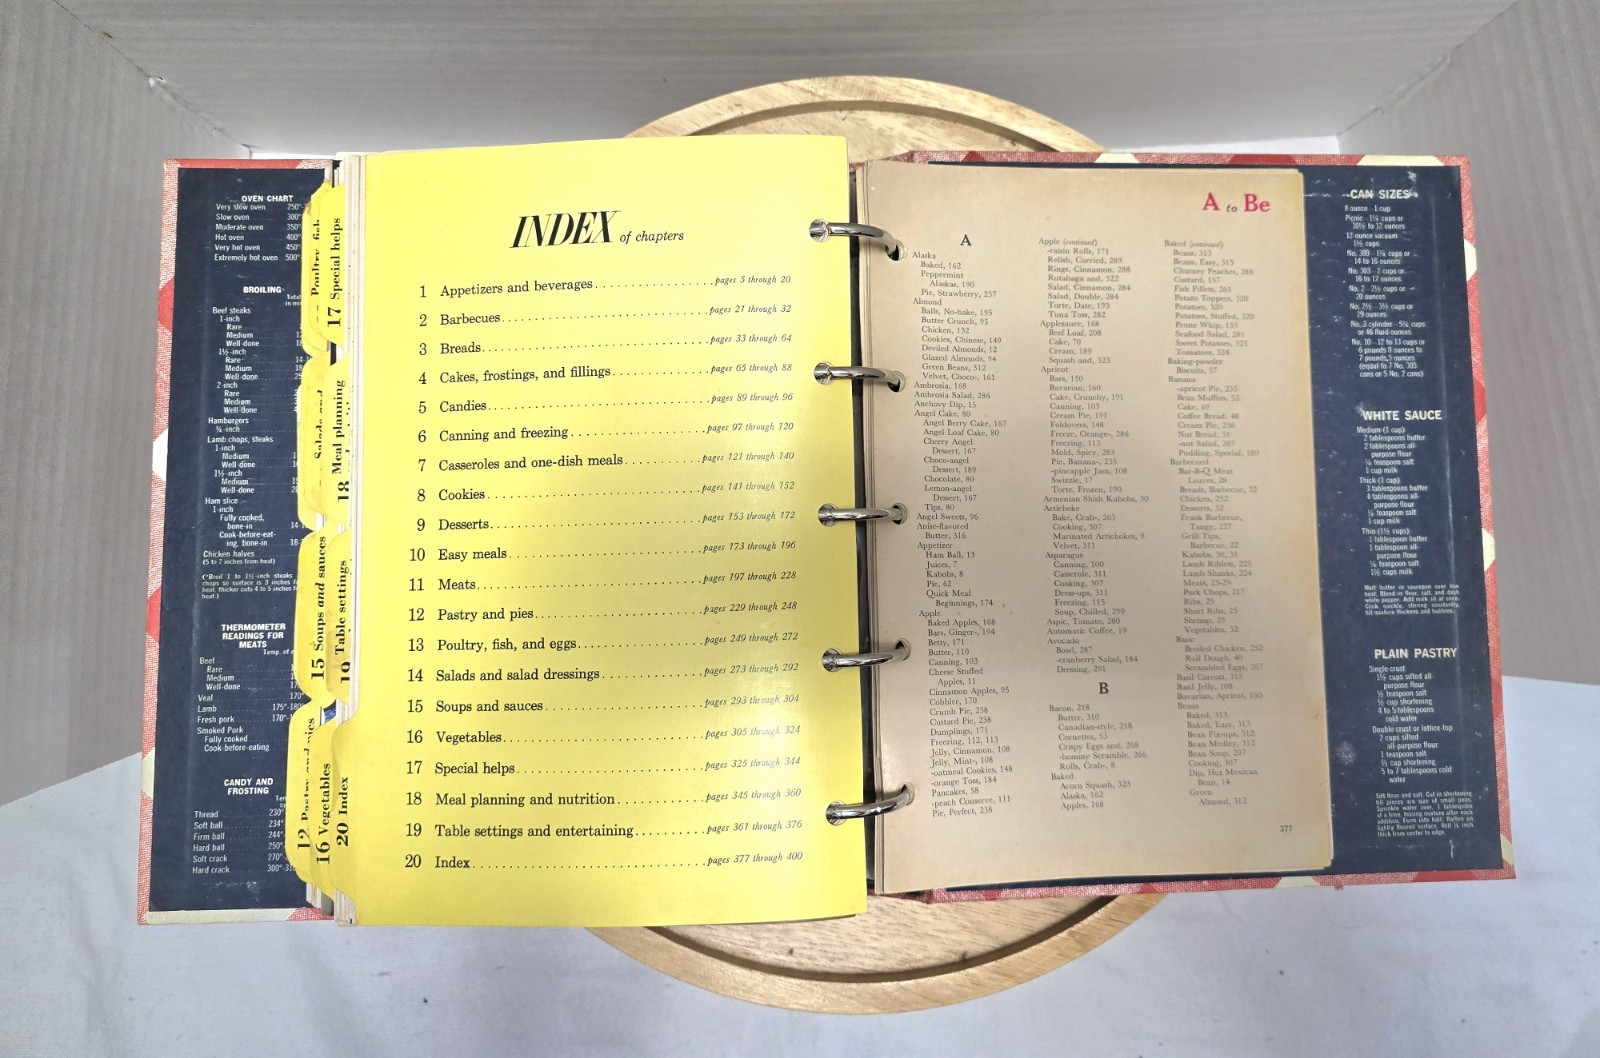 OVEN CHART
Very slow oven 250°
Slow oven 300°
Moderate oven 350°
Hot oven 400°
Very hot oven 450°
Extremely hot oven 500°
BROILING
Beef steaks
1-inch
Rare
Medium
Well-done
1½-inch
Rare
Medium
Well-done
2-inch
Rare
Medium
Well-done
Hamburgers
¾-inch
Lamb chops, steaks
1-inch
Medium
Well-done
1½-inch
Medium
Well-done
Ham slice
1-inch
Fully cooked,
bone-in
Cook-before-eat-
ing, bone-in
Chicken halves
(5 to 7 inches from heat)
THERMOMETER
READINGS FOR
MEATS
Beef
Rare
Medium
Well-done
Veal 170°
Lamb 175°-180°
Fresh pork 170°
Smoked Pork
Fully cooked
Cook-before-eating
CANDY AND
FROSTING
Thread 230°
Soft ball 234°
Firm ball 244°
Hard ball 250°
Soft crack 270°
Hard crack 300°-310
Poultry fish
17 Special helps
Salads and
18 Meal planning
15 Soups and sauces
19 Table settings
12 Pastry and pies
16 Vegetables
20 Index
INDEX of chapters
1 Appetizers and beverages pages 5 through 20
2 Barbecues pages 21 through 32
3 Breads pages 33 through 64
4 Cakes, frostings, and fillings pages 65 through 88
5 Candies pages 89 through 96
6 Canning and freezing pages 97 through 120
7 Casseroles and one-dish meals pages 121 through 140
8 Cookies pages 141 through 152
9 Desserts pages 153 through 172
10 Easy meals pages 173 through 196
11 Meats pages 197 through 228
12 Pastry and pies pages 229 through 248
13 Poultry, fish, and eggs pages 249 through 272
14 Salads and salad dressings pages 273 through 292
15 Soups and sauces pages 293 through 304
16 Vegetables pages 305 through 324
17 Special helps pages 325 through 344
18 Meal planning and nutrition pages 345 through 360
19 Table settings and entertaining pages 361 through 376
20 Index pages 377 through 400
A to Be
A
Alaska
Baked, 162
Peppermint
Alaskas, 190
Pie, Strawberry, 237
Almond
Balls, No-bake, 195
Butter Crunch, 95
Chicken, 132
Cookies, Chinese, 149
Deviled Almonds, 12
Glazed Almonds, 94
Green Beans, 312
Velvet, Choco-, 161
Ambrosia, 168
Ambrosia Salad, 286
Anchovy Dip, 15
Angel Cake, 80
Angel Berry Cake, 167
Angel Loaf Cake, 80
Cherry Angel
Dessert, 167
Choco-angel
Dessert, 189
Chocolate, 80
Lemon-angel
Dessert, 167
Tips, 80
Angel Sweets, 96
Anise-flavored
Butter, 316
Appetizer
Ham Ball, 13
Juices, 7
Kabobs, 8
Pie, 62
Quick Meal
Beginnings, 174
Apple
Baked Apples, 168
Bars, Ginger-, 194
Betty, 171
Butter, 110
Canning, 103
Cheese Stuffed
Apples, 11
Cinnamon Apples, 95
Cobbler, 170
Crumb Pie, 238
Custard Pie, 238
Dumplings, 171
Freezing, 112, 113
Jelly, Cinnamon, 108
Jelly, Mint-, 108
-oatmeal Cookies, 148
-orange Toss, 184
Pancakes, 58
-peach Conserve, 111
Pie, Perfect, 238
Apple (continued)
-raisin Rolls, 171
Relish, Curried, 289
Rings, Cinnamon, 288
Rutabaga and, 322
Salad, Cinnamon, 284
Salad, Double, 284
Torte, Date, 193
Tuna Toss, 282
Applesauce, 168
Beef Loaf, 208
Cake, 70
Cream, 189
Squash and, 323
Apricot
Bars, 150
Bavarian, 160
Cake, Crunchy, 191
Canning, 103
Cream Pie, 191
Foldovers, 148
Freeze, Orange-, 286
Freezing, 113
Mold, Spicy, 283
Pie, Banana-, 235
-pineapple Jam, 108
Swizzle, 17
Torte, Frozen, 190
Armenian Shish Kabobs, 30
Artichoke
Bake, Crab-, 263
Cooking, 307
Marinated Artichokes, 9
Velvet, 311
Asparagus
Canning, 100
Casserole, 311
Cooking, 307
Dress-ups, 311
Freezing, 115
Soup, Chilled, 299
Aspic, Tomato, 280
Automatic Coffee, 19
Avocado
Bowl, 287
-cranberry Salad, 184
Dressing, 291
B
Bacon, 218
Butter, 310
Canadian-style, 218
Cornettes, 53
Crispy Eggs and, 268
-hominy Scramble, 266
Rolls, Crab-, 8
Baked
Acorn Squash, 323
Alaska, 162
Apples, 168
Baked (continued)
Beans, 313
Beans, Easy, 313
Chutney Peaches, 288
Custard, 157
Fish Fillets, 261
Potato Toppers, 320
Potatoes, 320
Potatoes, Stuffed, 320
Prune Whip, 155
Seafood Salad, 281
Sweet Potatoes, 321
Tomatoes, 324
Baking-powder
Biscuits, 57
Banana
-apricot Pie, 235
Bran Muffins, 52
Cake, 69
Coffee Bread, 48
Cream Pie, 236
Nut Bread, 51
-nut Salad, 287
Pudding, Special, 189
Barbecued
Bar-B-Q Meat
Loaves, 28
Breads, Barbecue, 32
Chicken, 252
Desserts, 32
Frank Barbecue,
Tangy, 227
Grill Tips,
Barbecue, 22
Kabobs, 30, 31
Lamb Riblets, 225
Lamb Shanks, 224
Meats, 23-29
Pork Chops, 217
Ribs, 25
Short Ribs, 25
Shrimp, 29
Vegetables, 32
Basic
Broiled Chicken, 252
Roll Dough, 40
Scrambled Eggs, 267
Basil Carrots, 315
Basil Jelly, 108
Bavarian, Apricot, 160
Beans
Baked, 313
Baked, Easy, 313
Bean Fix-ups, 312
Bean Medley, 312
Bean Soup, 297
Cooking, 307
Dip, Hot Mexican
Bean, 14
Green
Almond, 312
377
CAN SIZES
8 ounce - 1 cup
Picnic - 1¼ cups or
10½ to 12 ounces
12-ounce vacuum
1½ cups
No. 300 - 1¾ cups or
14 to 16 ounces
No. 303 - 2 cups or
16 to 17 ounces
No. 2 - 2½ cups or
20 ounces
No. 2½ - 3½ cups or
29 ounces
No. 3 cylinder - 5¾ cups
or 46 fluid ounces
No. 10 - 12 to 13 cups or
6 pounds 8 ounces to
7 pounds, 5 ounces
(equal to 7 No. 303
cans or 5 No. 2 cans)
WHITE SAUCE
Medium (1 cup)
2 tablespoons butter
2 tablespoons all-
purpose flour
¼ teaspoon salt
1 cup milk
Thick (1 cup)
3 tablespoons butter
4 tablespoons all-
purpose flour
¼ teaspoon salt
1 cup milk
Thin (1½ cups)
1 tablespoon butter
1 tablespoon all-
purpose flour
¼ teaspoon salt
1½ cups milk
Melt butter in saucepan over low
heat. Blend in flour, salt, and dash
white pepper. Add milk all at once.
Cook quickly, stirring constantly,
till mixture thickens and bubbles.
PLAIN PASTRY
Single crust
1½ cups sifted all-
purpose flour
½ teaspoon salt
½ cup shortening
4 to 5 tablespoons
cold water
Double crust or lattice-top
2 cups sifted
all-purpose flour
1 teaspoon salt
⅔ cup shortening
5 to 7 tablespoons cold
water